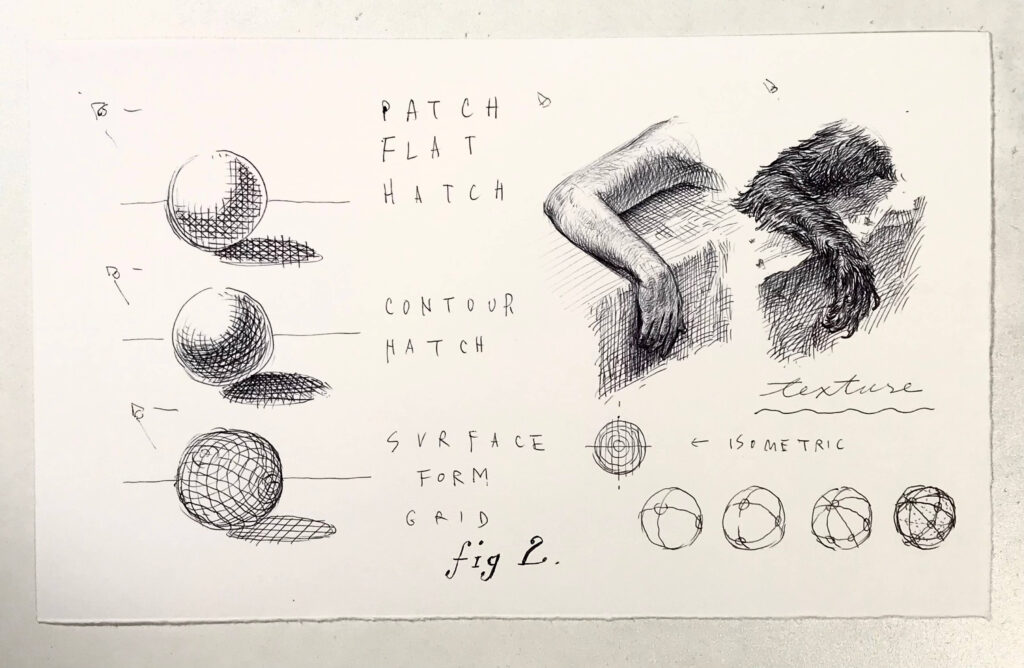 PATCH
FLAT
HATCH
CONTOUR
HATCH
SURFACE
FORM
GRID
texture
← ISOMETRIC
fig 2.